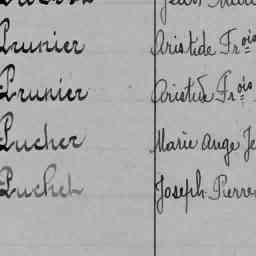 Jean Marie
Prunier Aristide Frois
Prunier Aristide Frois
Pucher Marie Ange Je
Puchet Joseph Pierre